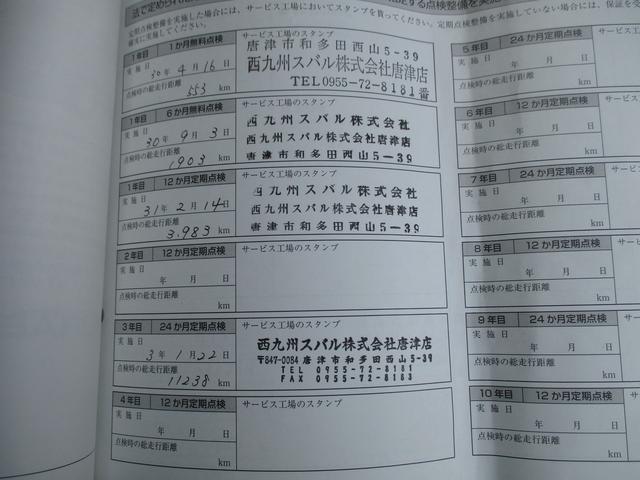 定期点検整備を実施した場合には、サービス工場においてスタンプを貰ってください。定期点検整備を実施していない場合には、保証を受
確実に実施してください。
1年目 1か月無料点検
実施日
30年 4月 16日
点検時の総走行距離
553 km
サービス工場のスタンプ
唐津市和多田西山5-39
西九州スバル株式会社唐津店
TEL0955-72-8181番
1年目 6か月無料点検
実施日
30年 9月 3日
点検時の総走行距離
1903 km
サービス工場のスタンプ
西九州スバル株式会社
西九州スバル株式会社唐津店
唐津市和多田西山5-39
1年目 12か月定期点検
実施日
31年 2月 14日
点検時の総走行距離
3,983 km
サービス工場のスタンプ
西九州スバル株式会社
西九州スバル株式会社唐津店
唐津市和多田西山5-39
2年目 12か月定期点検
実施日
年 月 日
点検時の総走行距離
km
サービス工場のスタンプ
3年目 24か月定期点検
実施日
3年 1月 22日
点検時の総走行距離
11238 km
サービス工場のスタンプ
西九州スバル株式会社唐津店
〒847-0084 唐津市和多田西山5-39
TEL 0955-72-8181
FAX 0955-72-8183
4年目 12か月定期点検
実施日
年 月 日
点検時の総走行距離
km
サービス工場のスタンプ
5年目 24か月定期点検
実施日
年 月 日
点検時の総走行距離
km
6年目 12か月定期点検
実施日
年 月 日
点検時の総走行距離
km
7年目 24か月定期点検
実施日
年 月 日
点検時の総走行距離
km
8年目 12か月定期点検
実施日
年 月 日
点検時の総走行距離
km
9年目 24か月定期点検
実施日
年 月 日
点検時の総走行距離
km
10年目 12か月定期点検
実施日
年 月 日
点検時の総走行距離
km